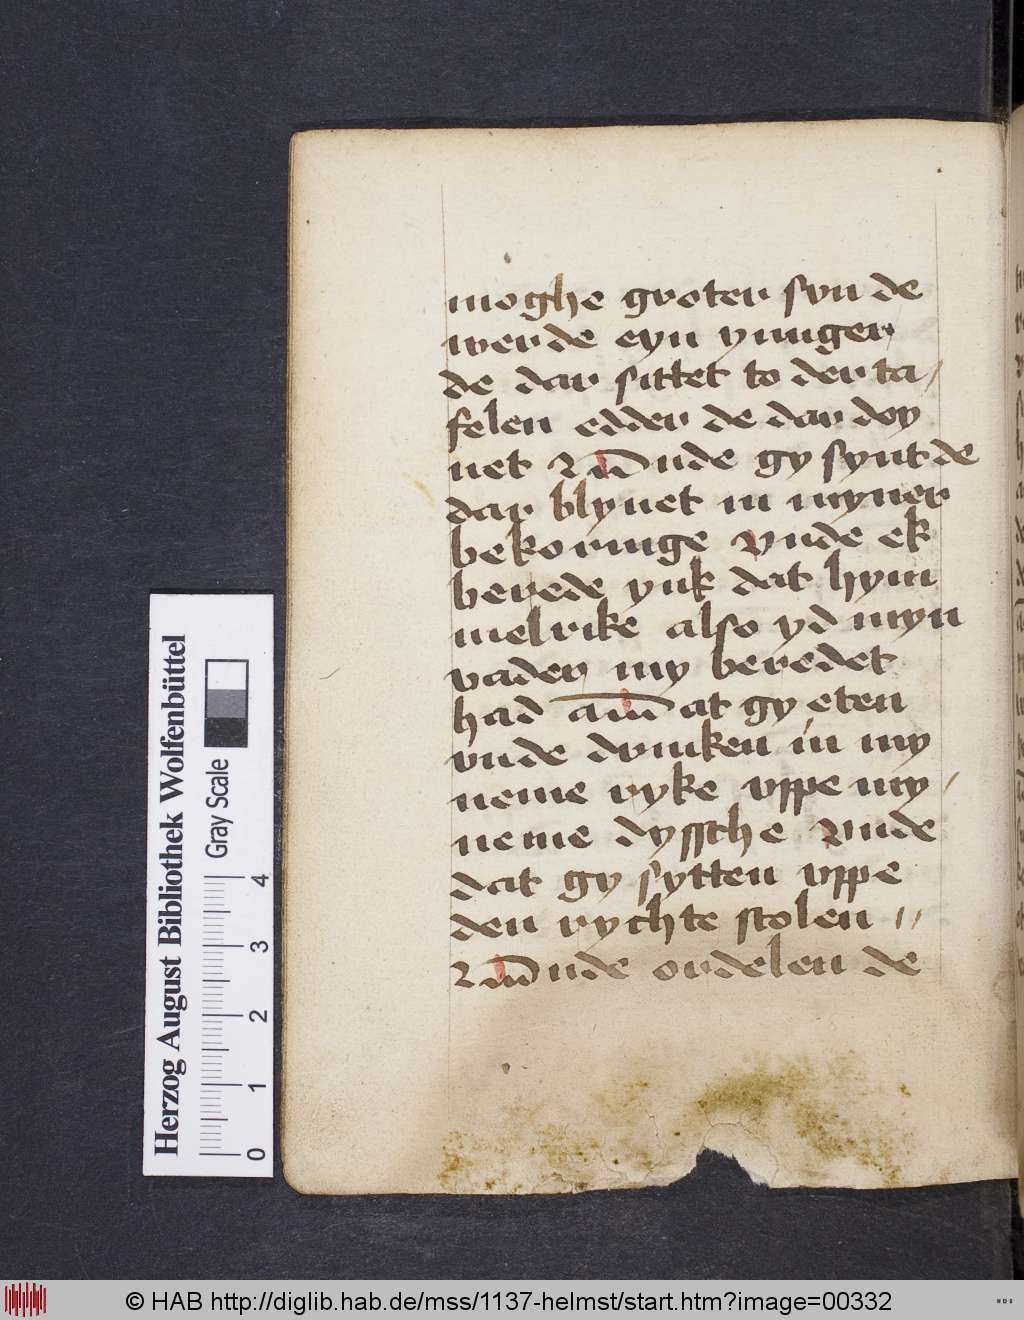 moghe groter syn de
werde eyn yunger
de dar sittet to der ta/
felen edder de dar dey
net vnde gy synt de
dar blyuet in myner
bekoringe vnde ek
berede yuk dat hym
melrike also yd myn
vader my beredet
had dat gy eten
vnde drinken in my
neme ryke vppe my/
neme dyssche vnde
dat gy sytten vppe
den rychte stolen //
vnde ordelen de
Herzog August Bibliothek Wolfenbüttel
Gray Scale
0 1 2 3 4
© HAB http://diglib.hab.de/mss/1137-helmst/start.htm?image=00332